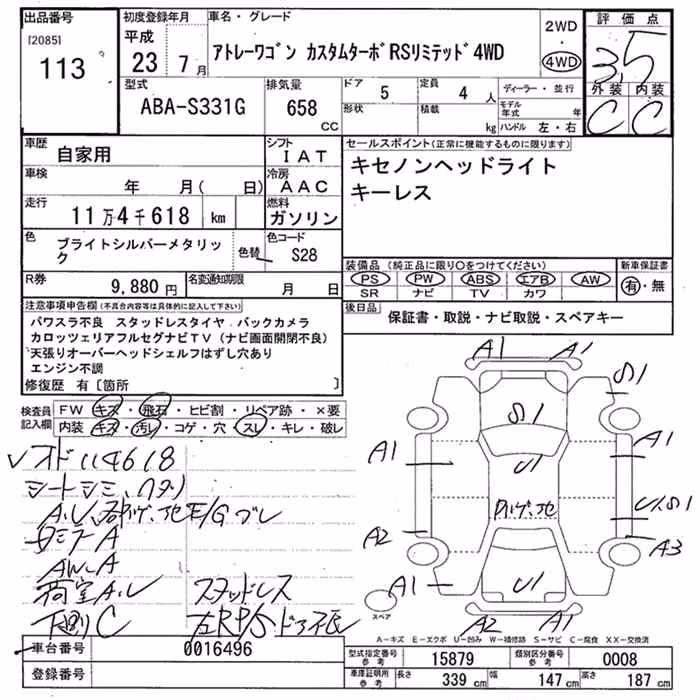 出品番号
[2085]
113
初度登録年月
平成
23 7月
車名・グレード
アトレーワゴン カスタムターボRSリミテッド4WD
2WD
・
4WD
評価点
3.5
外装 内装
C C
型式
ABA-S331G
排気量
658
CC
ドア
5
定員
4人
形状
積載
kg
ディーラー・並行
モデル年式 年
ハンドル 左・右
車歴
自家用
シフト
IAT
車検
年 月( 日)
冷房
AAC
走行
11万4千618 km
燃料
ガソリン
色
ブライトシルバーメタリック
色替
色コード
S28
R券
9,880円
名変通知期限
月 日
セールスポイント(正常に機能するものに限ります)
キセノンヘッドライト
キーレス
装備品(純正品に限り〇をつけてください)
PS PW ABS エアB AW
SR ナビ TV カワ
新車保証書
有・無
後日品
保証書・取説・ナビ取説・スペアキー
注意事項申告欄(不具合内容等は具体的に記入して下さい)
パワスラ不良 スタッドレスタイヤ.バックカメラ
カロッツェリアフルセグナビTV(ナビ画面開閉不良)
天張りオーバーヘッドシェルフはずし穴あり
エンジン不調
修復歴 有〔箇所 〕
検査員
記入欄
FW キズ・飛石・ヒビ割・リペア跡・×要
内装 キズ・汚レ・コゲ・穴・スレ・キレ・破レ
オド114618
シートシミ、ハタリ
A.U
E/Gブレ
AW.A
荷室A.U スタッドレス
下廻りC 左RP/Sドア張
A1 A1
S1
S1
A1 A1
U1
U1.S1
A2 A3
A1 U1
A2 A1
スペア
A-キズ E-エクボ U-凹み W-補修跡 S-サビ C-腐食 XX-交換済
車台番号
0016496
登録番号
型式指定番号
参考
15879
類別区分番号
参考
0008
車庫証明用
参考
長さ 339 cm 幅 147 cm 高さ 187 cm